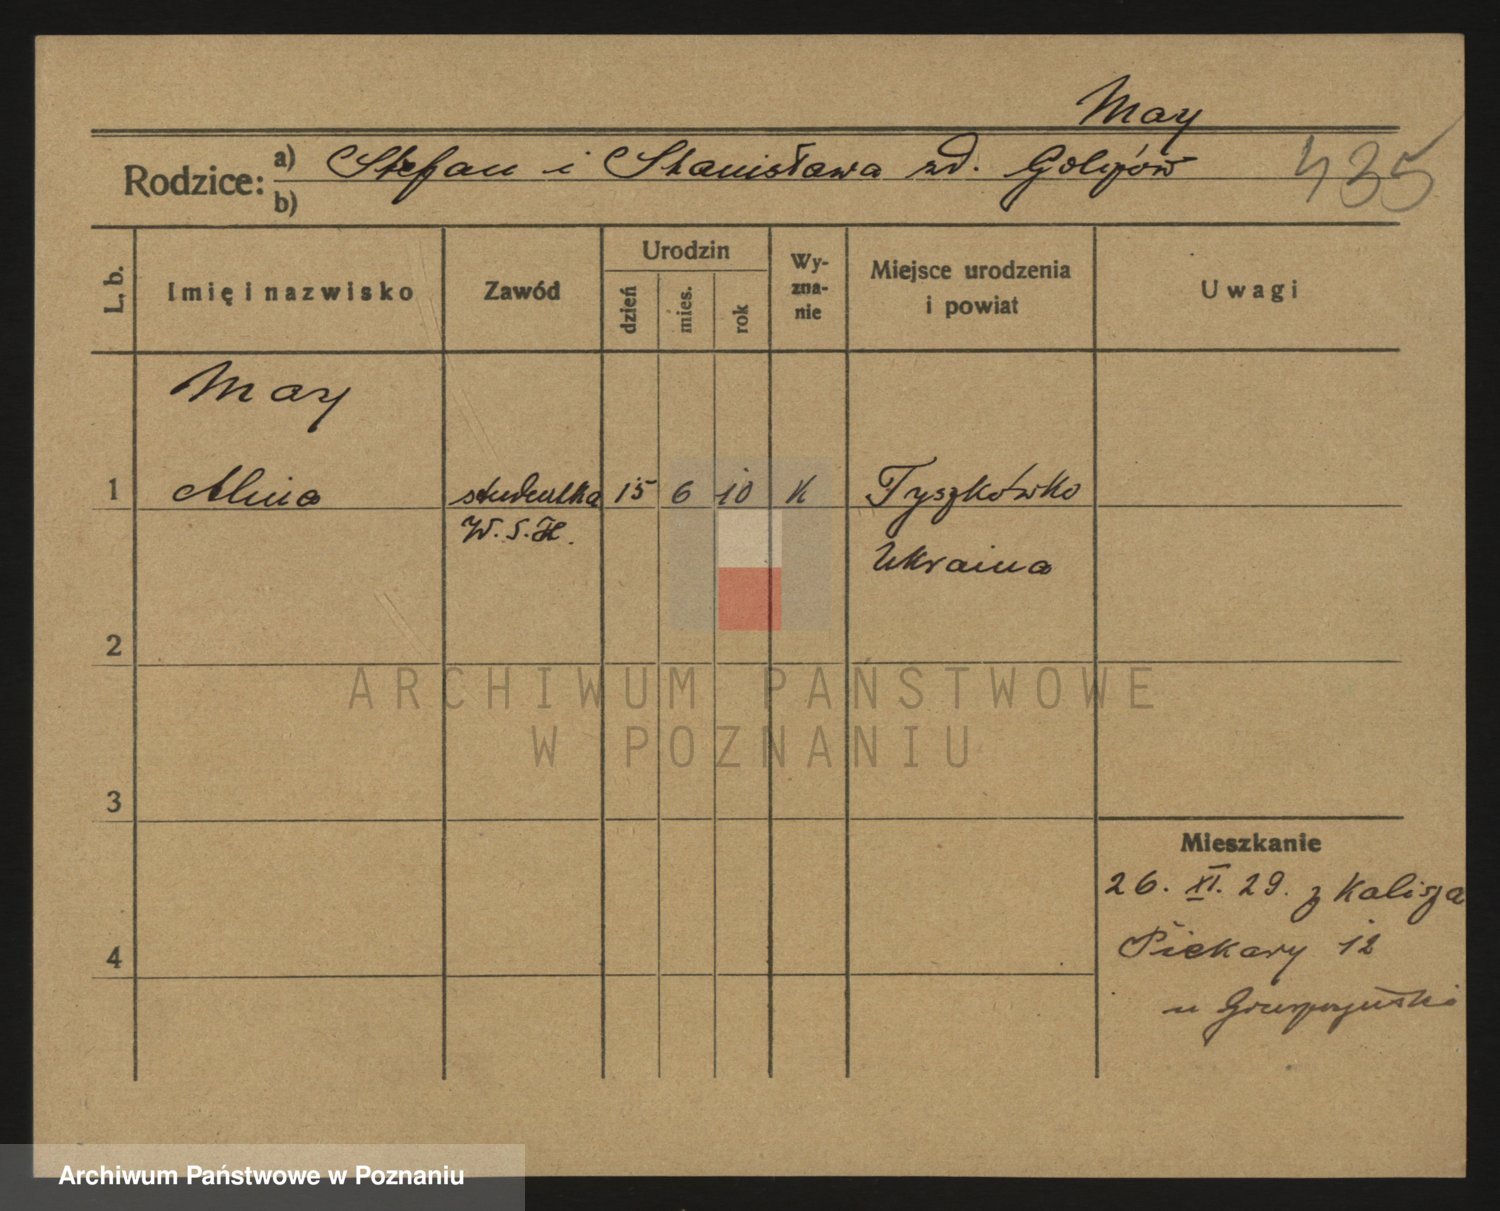 May
Rodzice: a) Stefan i Stanisława zd. 435
b)
L. b. Imię i nazwisko Zawód Urodzin Wy-zna-nie Miejsce urodzenia i powiat Uwagi
dzień mies. rok
May
1 Alina studentka 15 6 10 K Tyszkówka
W.S.H. Ukraina
2
ARCHIWUM PAŃSTWOWE
W POZNANIU
3
Mieszkanie
26. XI. 29. z Kalisza
4 Piekary 12
u
Archiwum Państwowe w Poznaniu